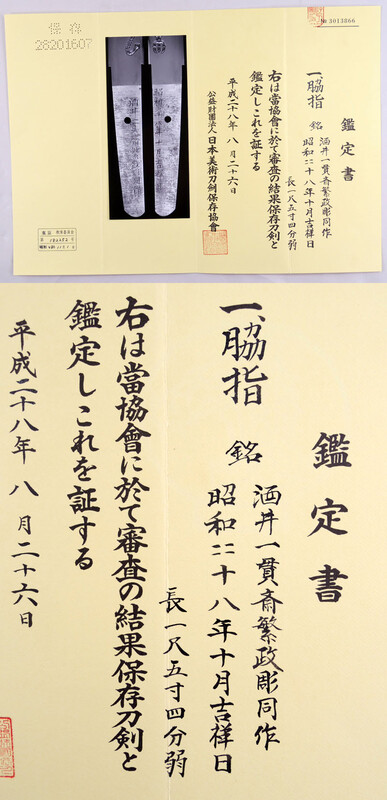 保存
28201607
№ 3013866
鑑定書
一、脇指
銘 酒井一貫斎繁政彫同作
昭和二十八年十月吉祥日
長一尺五寸四分弱
右は當協會に於て審査の結果保存刀剣と
鑑定しこれを証する
平成二十八年 八月二十六日
公益財團法人 日本美術刀剣保存協會
鑑定書
一、脇指
銘 酒井一貫斎繁政彫同作
昭和二十八年十月吉祥日
長一尺五寸四分弱
右は當協會に於て審査の結果保存刀剣と
鑑定しこれを証する
平成二十八年 八月二十六日